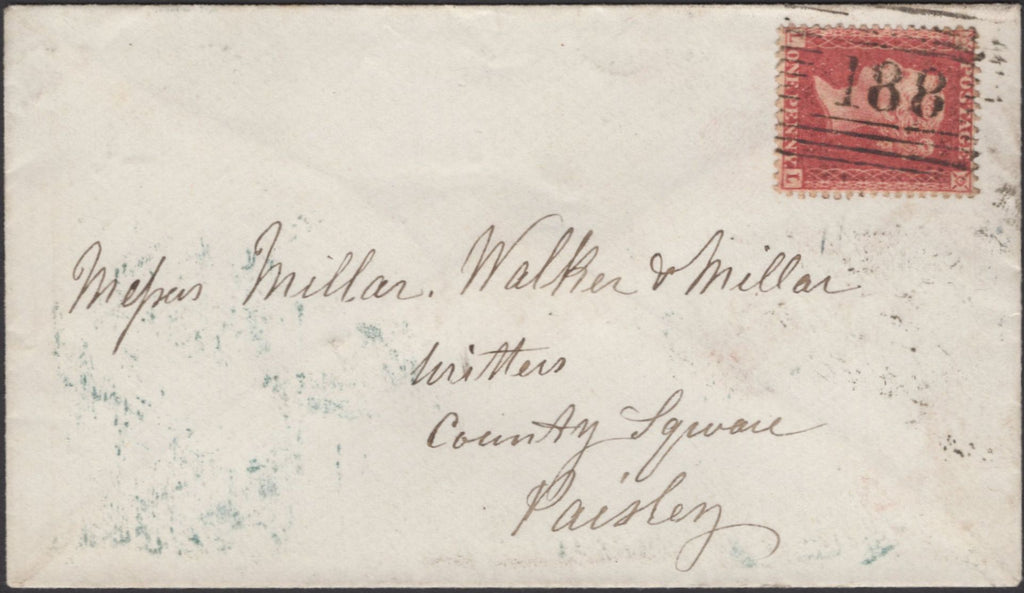 188
POSTAGE
ONE PENNY
Messrs Millar. Walker & Millar
Writters
County Square
Paisley